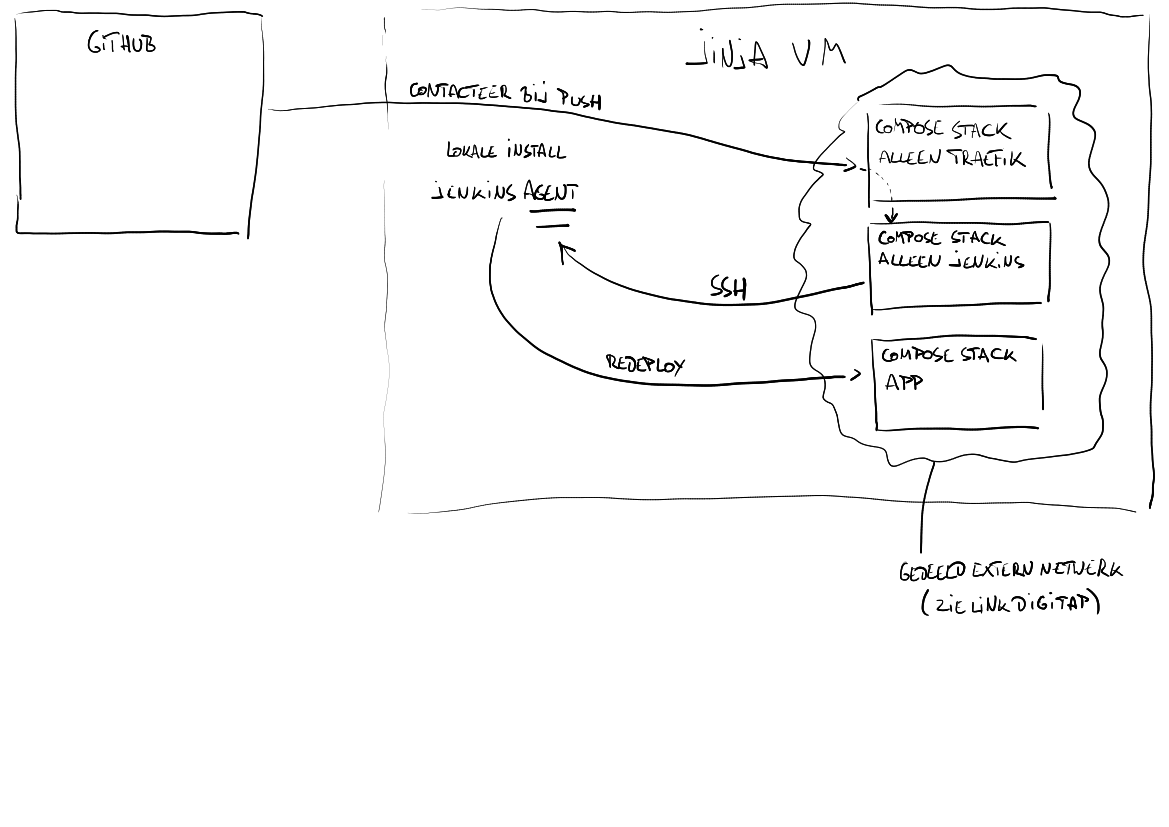 GITHUB
JINJA VM
CONTACTEER BIJ PUSH
LOKALE INSTALL
JENKINS AGENT
COMPOSE STACK
ALLEEN TRAEFIK
COMPOSE STACK
ALLEEN JENKINS
SSH
REDEPLOY
COMPOSE STACK
APP
GEDEELD EXTERN NETWERK
(ZIE LINK DIGITAP)